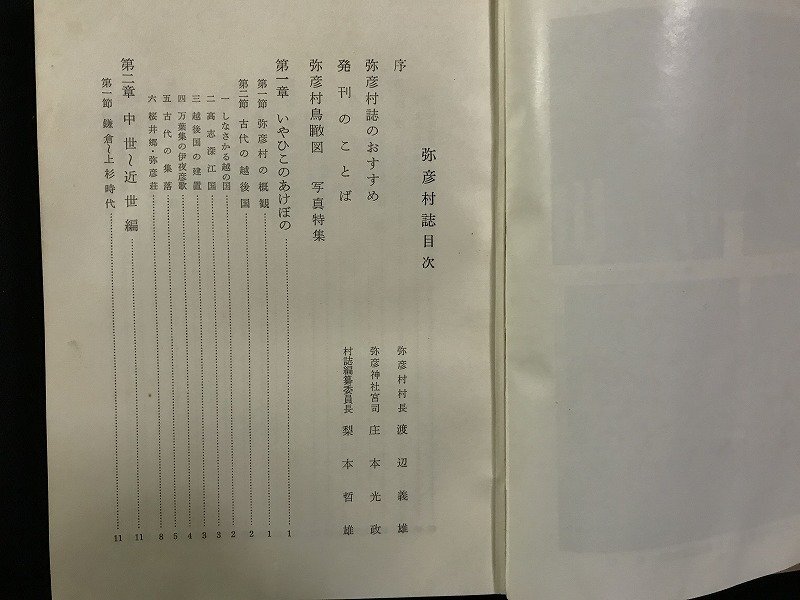 弥彦村誌目次
序 弥彦村村長 渡辺義雄
弥彦村誌のおすすめ 弥彦神社宮司 庄本光政
発刊のことば 村誌編纂委員長 梨本哲雄
弥彦村鳥瞰図 写真特集
第一章 いやひこのあけぼの……1
第一節 弥彦村の概観……1
第二節 古代の越後国……2
一 しなさかる越の国……2
二 高志深江国……3
三 越後国の建置……3
四 万葉集の伊夜彦歌……4
五 古代の集落……5
六 桜井郷・弥彦荘……8
第二章 中世~近世編……11
第一節 鎌倉~上杉時代……11